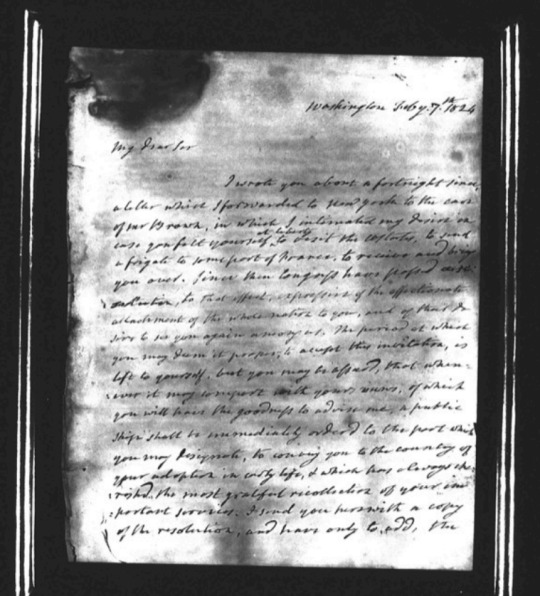 Washington Feby. 7th 1824
My Dear Sir
I wrote you about a fortnight since,
a letter which I forwarded to New York to the care
of Mr Brown, in which I intimated my desire in
case you felt yourself at liberty to visit the U States, to send
a frigate to some port of France, to receive and bring
you over. Since then Congress have passed a
resolution, to that effect, expressive of the affectionate
attachment of the whole nation to you, and of their de-
sire to see you again among us. The period at which
you may deem it proper, to accept this invitation, is
left to yourself, but you may be assurd, that when-
ever it may comport with your views, of which
you will have the goodness to advise me, a public
ship shall be immediately orderd to the port which
you may designate, to convey you to the country of
your adoption in early life, & which has always che-
rishd, the most grateful recollection of your im-
portant services. I send you herewith a copy
of the resolution, and have only to add, the